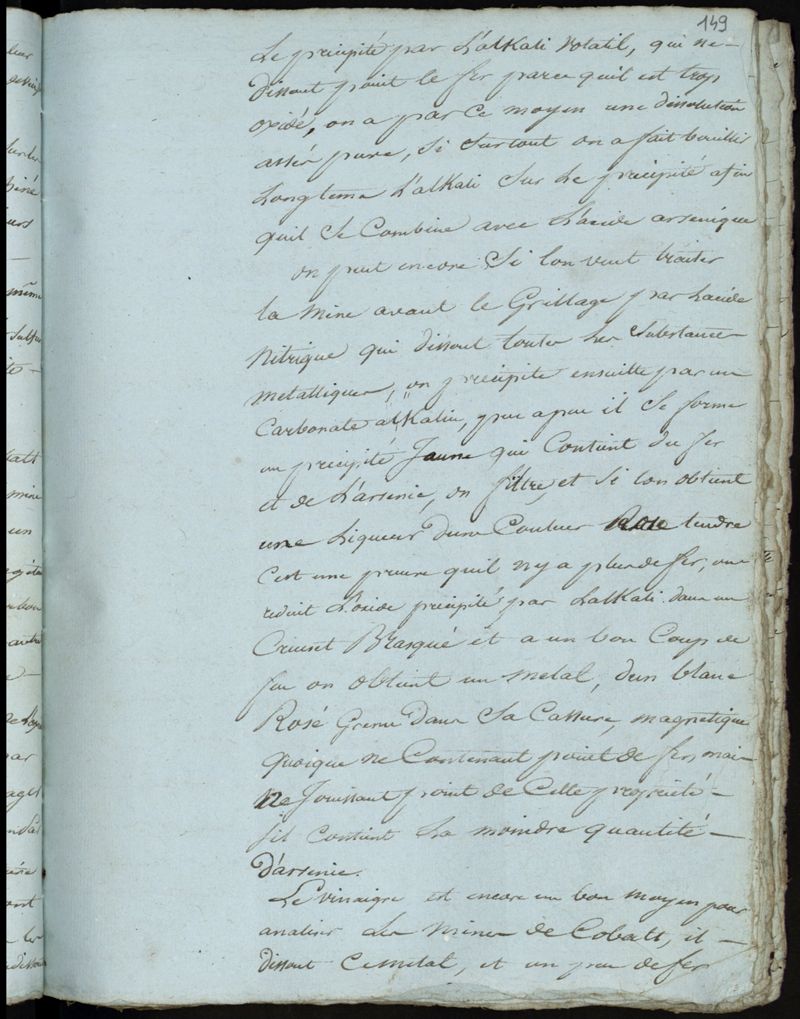 149
Le precipité par L'alkali volatil, qui ne
dissout point le fer parce quil est trop
oxidé, on a par ce moyen une dissolution
assés pure, Si Surtout on a fait bouillir
Longtems L'alkali Sur Le precipité afin
quil Se Combine avec L'acide arsenique
on peut encore Si lon veut traiter
la Mine avant le Grillage par Lacide
Nitrique qui dissout toutes Les Substances
metalliques, on precipite ensuitte par un
Carbonate alKalin, peu apeu il Se forme
un precipité Jaune qui Contient du fer
et de L'arsenic, on filtre, et Si lon obtient
une Liqueur dune Couleur Rose tendre
C'est une preuve quil ny a plus de fer, on
reduit L'oxide precipité par Lalkali dans un
Creuset Brasqué et a un bon Coup de
feu on obtient un metal, d'un blanc
Rosé Grenu dans Sa Cassure, magnetique
quoique ne Contenant point de fer, mais
Ne Jouissant point de Cette proprieté
s'il contient La moindre quantité
D'arsenic.
Le vinaigre est encore un bon moyen pour
analiser Les Mines de Cobalt, il
dissout Ce metal, et un peu de fer